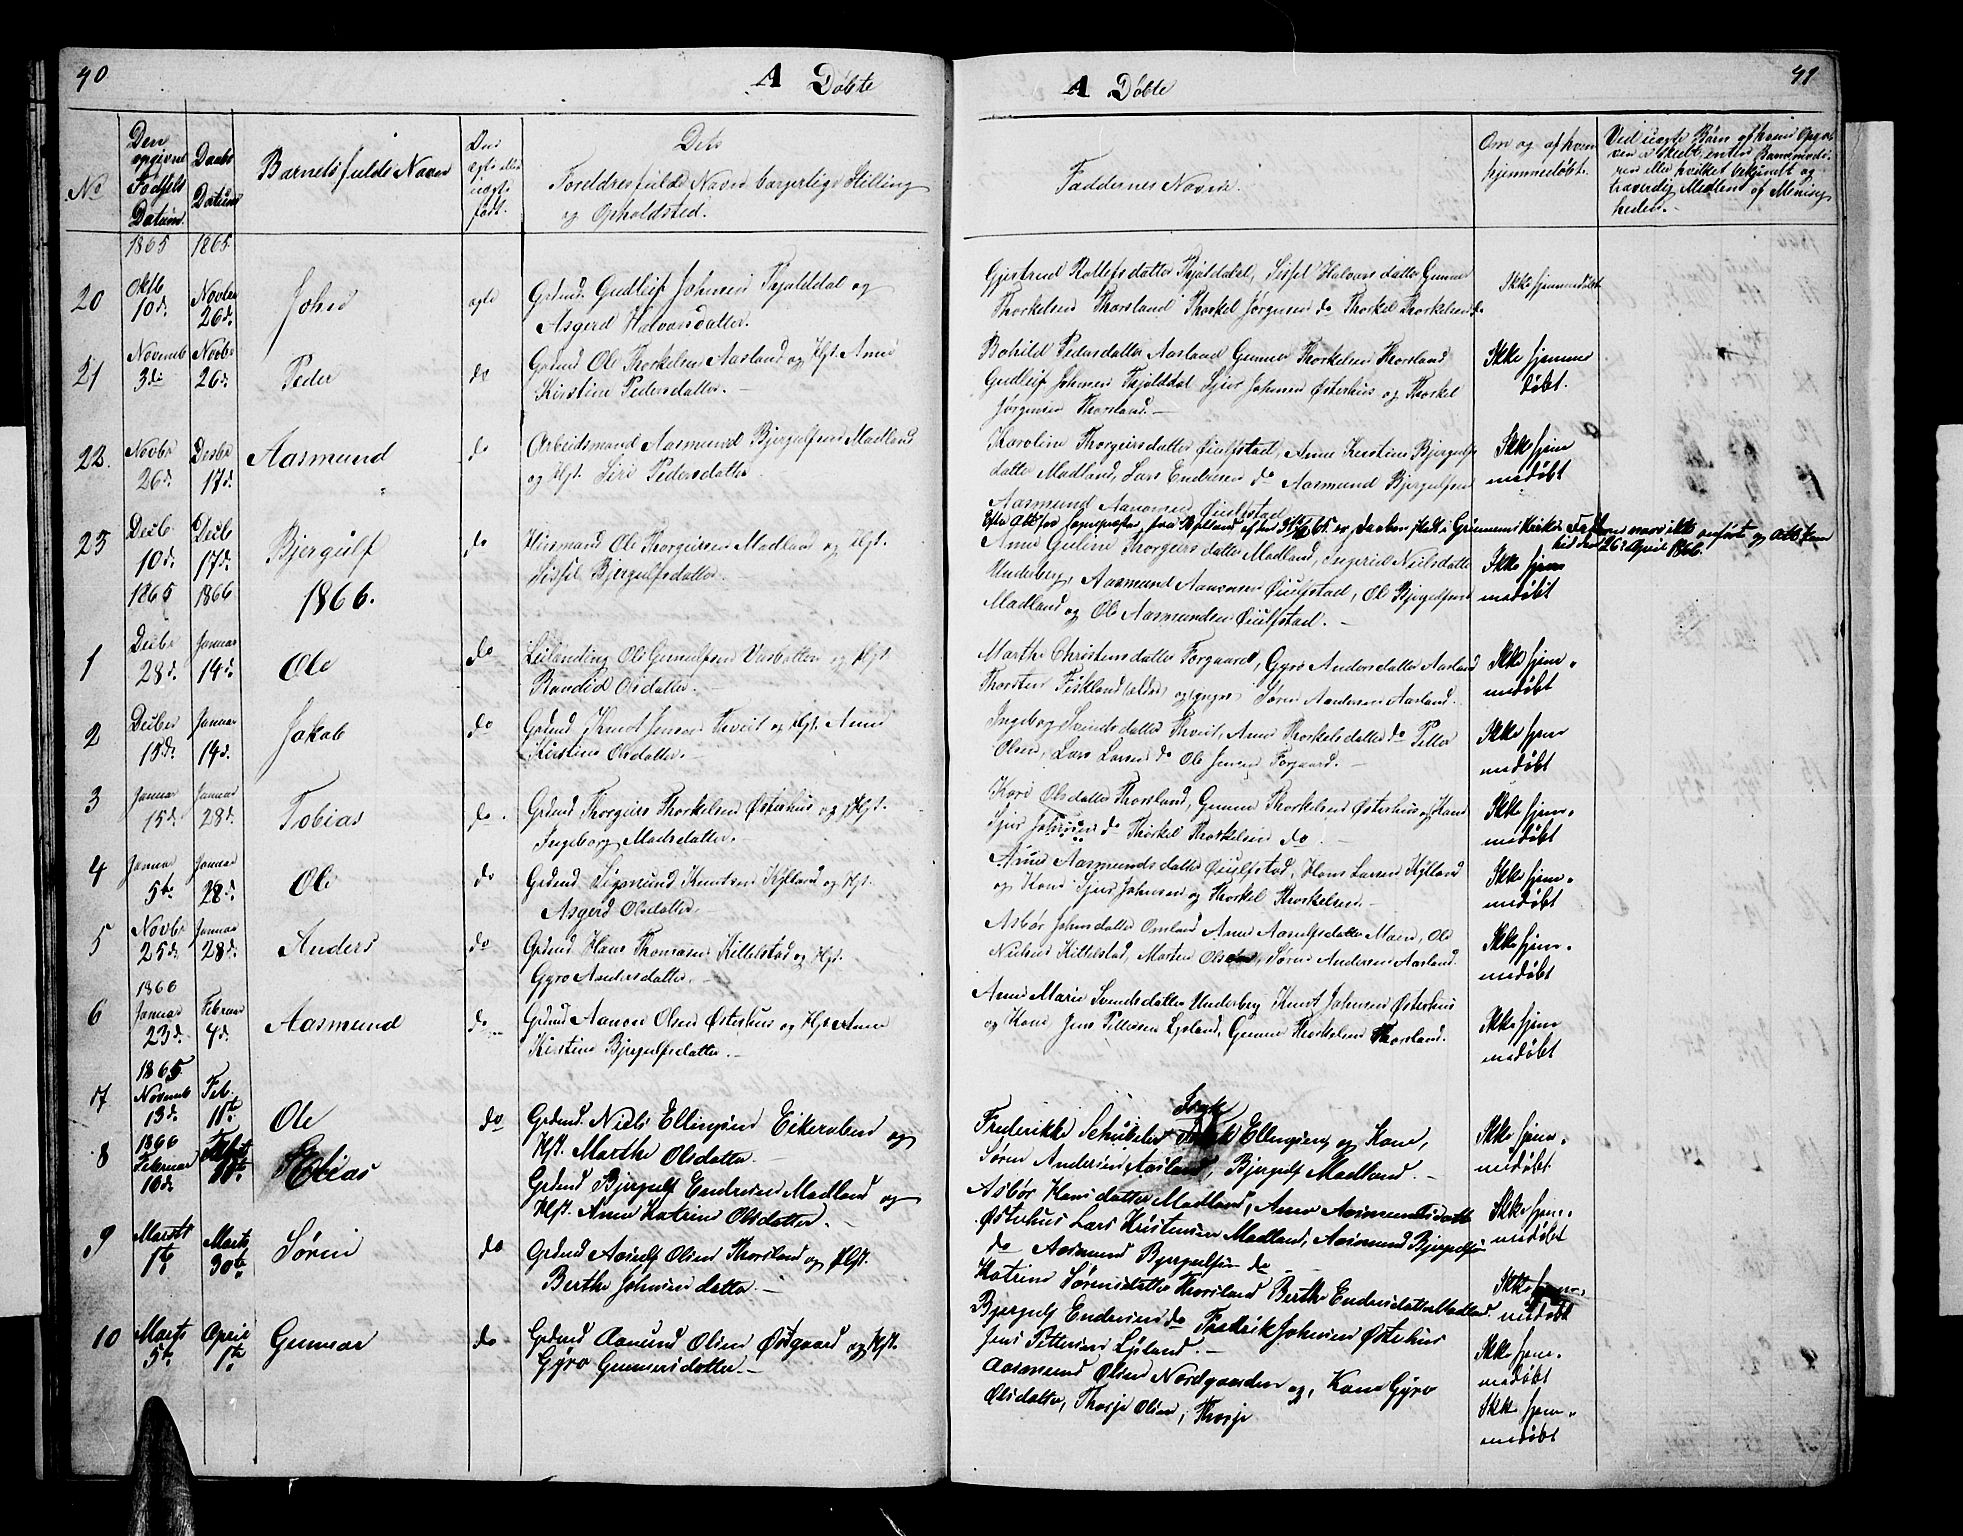 40
A Döbte
No
Den opgivne Födsels Datum
Daabs Datum
Barnets fulde Navn
Om ægte eller uægte født.
Dets
Foreldres fulde Navn borgerlige Stilling
og Opholdsted.
1865 1865
20 Oktb 10d. Novbr 26d. John ægte Grdmd. Gudleif Johnsen Fjalddal og
Asgerd Halvorsdatter.
21 Novemb 3di Novbr 26d. Peder do Grdmd Ole Thorkelsen Aasland og Hst. Anne
Kirstine Pedersdatter.
22. Novbr 26d. Desbr 17d. Aasmund do Arbeidsmand Aasmund Bjergulfsen Madland
og Hst. Siri Pedersdatter
23 Decb 10d. Decb 17d. Bjergulf do Huusmand Ole Thorgeirsen Madland og Hst.
Sissel Bjergulfsdatter.
1865 1866 1866.
1 Decbr 28d. Januar 14d. Ole do Leilending Ole Gunulfsen Vasbotten og Hst.
Randid Olsdatter.
2 Decber 15d. Januar 14d. Jakob do Grdmd Knut Jensen Tveit og Hst. Anne
Kirstine Olsdatter.
3 Januar 15d. Januar 28d. Tobias do. Grdmd Thorgeir Thorkelsen Østerhus og Hst.
Ingeborg Madsdatter.
4 Januar 5te Januar 28d. Ole do Grdmd. Sigmund Knutsen Hylland og Hst.
Asgerd Olsdatter.
5 Novbr 25d. Januar 28d. Anders do Grdmd. Hans Thomasen Killelstad og Hst.
Gyro Andersdatter.
1866
6 Januar 23d. Februar 4d. Aasmund do Grdmd Aanon Olsen Østerhus og Hst Anne
Kirstine Bjergulfsdatter.
1865
7 Novemb 13d. Feb. 11te Ole do Grdmd. Niels Ellingsen Eikeraben og
Hst. Marthe Olsdatter.
1866
8 Februar 10d. Elias Grdmd Bjergulf Endresen Madland og
Hst. Anne Katrine Olsdatter.
9 Marts 1te Marts 30te Sören do Grdmd Aasulf Olsen Thorsland og Hst.
Berthe Johnsen datter.
10 Marts 5te April 1te Gunnar do Grdmd Aanund Olsen Østgaard og Hst.
Gyro Gunnersdatter.
A Döbte
41
Faddernes Navne.
Om og af hvem
hjemmedøbt.
Ved uægte Børn af hvem Opga-
ven er skedt, enten Barnemode-
ren eller hvilket bekjendt og
troverdig Medlem af Menig-
heden.
Gjertrud Rollefsdatter Fjalddal, Sissel Halvorsdatter Gunner
Thorkelsen Thorsland Thorkel Jørgensen do Thorkel Thorkelsen do
Ikke hjemmedøbt
Bohild Pedersdatter Aasland Gunner Thorkelsen Thorsland
Gudleif Johnsen Fjalddal Sjur Johnsen Østerhus og Thorkel
Jørgensen Thorsland.
Ikke hjemme
døbt.
Karoline Thorgeirsdatter Øiulfstad, Anne Kirstine Bjergulfs
datter Madland, Lars Endresen do Aasmund Bjergulfsen
Aasmund Aanonsen Øiulfstad
Ikke hjem
medøbt
Efter Att. fra Sognepresten fra Bylland
26d April 1866
Anne Guline Thorgeirsdatter Madland, Ingerid Nielsdatter
Underberg, Aasmund Aanonsen Øiulfstad, Ole Bjergulfsen
Madland og Ole Aasmundsen Øiulfstad.
Ikke hjem
medøbt
Marthe Christensdatter Forgaard, Gyro Andersdatter Aasland
Thorsten Fiskland (eldre) og (yngre) Sören Andersen Aasland.
Ikke hjem-
medøbt
Ingeborg Svendsdatter Thveit, Anne Thorkelsdatter do Petter
Olsen, Lars Larsen do Ole Jensen Forgaard.
Ikke hjem
medøbt
Kari Olsdatter Thorsland, Gunner Thorkelsen Østerhus og Kone
Sjur Johnsen do Thorkel Thorkelsen do.
Ikke hjem-
medøbt
Anne Aasmundsdatter Øiulfstad, Hans Larsen Hylland
og Kone Sjur Johnsen og Thorkel Thorkelsen.
Ikke hjem-
medøbt
Asbör Johnsdatter Omland Anne Aasulfsdatter Moen, Ole
Nielsen Killelstad, Morten Olsen, Sören Andersen Aasland.
Ikke hjem-
medøbt
Anne Marie Svendsdatter Underberg Knut Johnsen Østerhus
og Kone Jens Pettersen Lyland, Gunner Thorkelsen Thorsland.
Ikke hjem
medøbt
Frederikke Ellingsen og Kone,
Sören Andersen Aasland, Bjergulf Madland.
Ikke hjem-
medøbt
Asbör Hansdatter Madland, Anne Aasmundsdatter
Østerhus Lars Kristensen Madland, Aasmund Bjergulfsen
do Aasmund Bjergulfsen do
Ikke hjem-
medøbt
Katrine Sörensdatter Thorsland Berthe Endresdatter Madland
Bjergulf Endresen do Fredrik Johnsen Østerhus
Jens Pettersen Lyland.
Ikke hjem-
medøbt
Aasmund Olsen Nordgaarden og, Kone Gyro
Olsdatter, Thorje Olsen, Thorje
Ikke hjem-
medøbt
Ikke hjem-
medøbt